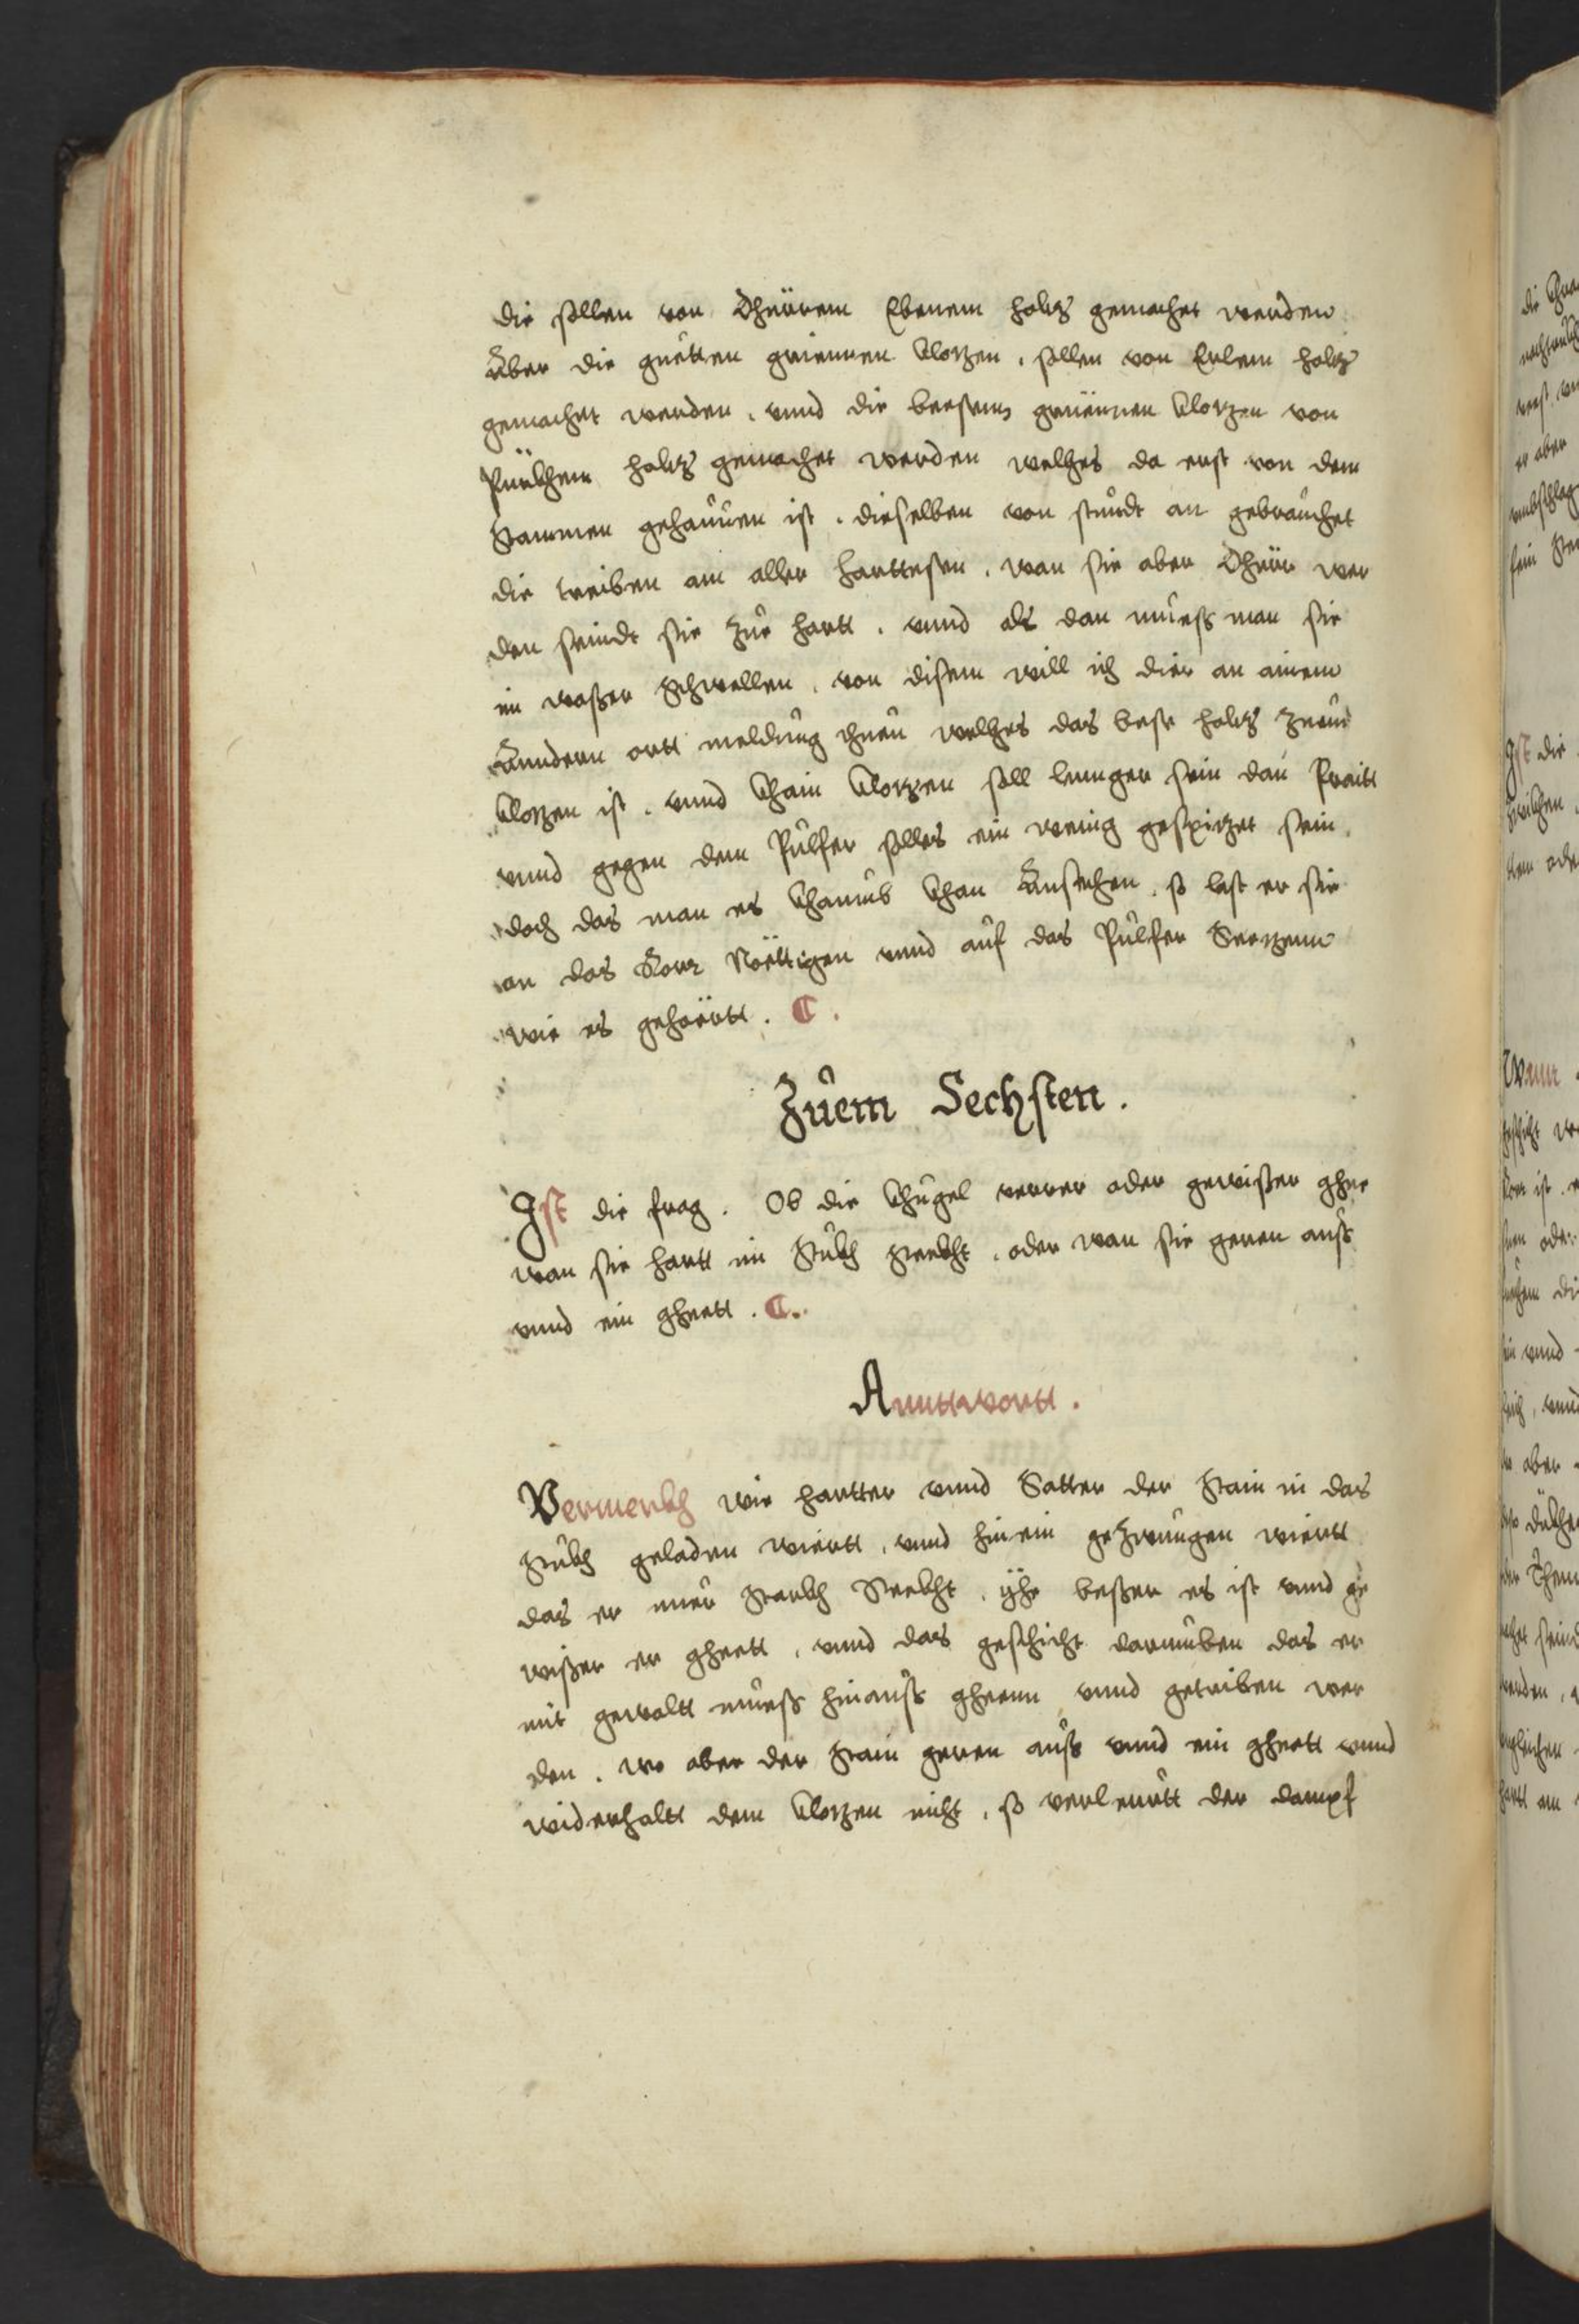 die sollen von Dhürem Ebenem holtz gemachet werden
Äber die guëtten griennen Clotzen, sollen von Erlem holtz
gemachet werden, vnnd die bersenns gruënnen Clotzen von
Pürkhem holtz gemachet werden welhes da erst von dem
Stammen gehauüen ist, dieselben von stundt an gebrauchet
die treiben am aller harttesten, wan sie aber Dhürr wer
den seindt sie Zue hartt, vnnd als dan muess man sie
in wasser Schwellen, von disem will ich dier an ainem
Anndern ortt meldung thuen welhes das beste holtz Zuem
Clotzen ist, vnnd Khain Clotzen soll lennger sein dan Praitt
vnnd gegen dem Pulfer solles ein wenig gespitzet sein,
doch das man es Khaumb Khan Ansehen, so last er sie
an das Ror Nöttigen vnnd auf das Pulfer Seetzenn
wie es gehöërtt. C.
Zuem Sechsten.
Ist die frag. Ob die Khugel verrer oder gewisser ghee
wan sie hartt im Stukh Steekht, oder wan sie geren auss
vnnd ein gheett. C.
Annttwortt.
Vermerkh wie hartter vnnd Satter der Stain in das
Stukh geladen wiertt, vnnd hinein geZwungen wiertt
das er nuer Starkh Steekht, yhe besser es ist vnnd ge
wisser er gheett, vnnd das geschicht darumben das er
mit gewaltt muess hinauss gheenn vnnd getriben wer
den. wo aber der Stain geren auss vnnd ein gheett vnnd
widerhaltt dem Clotzen nicht, so verleurtt der dampf